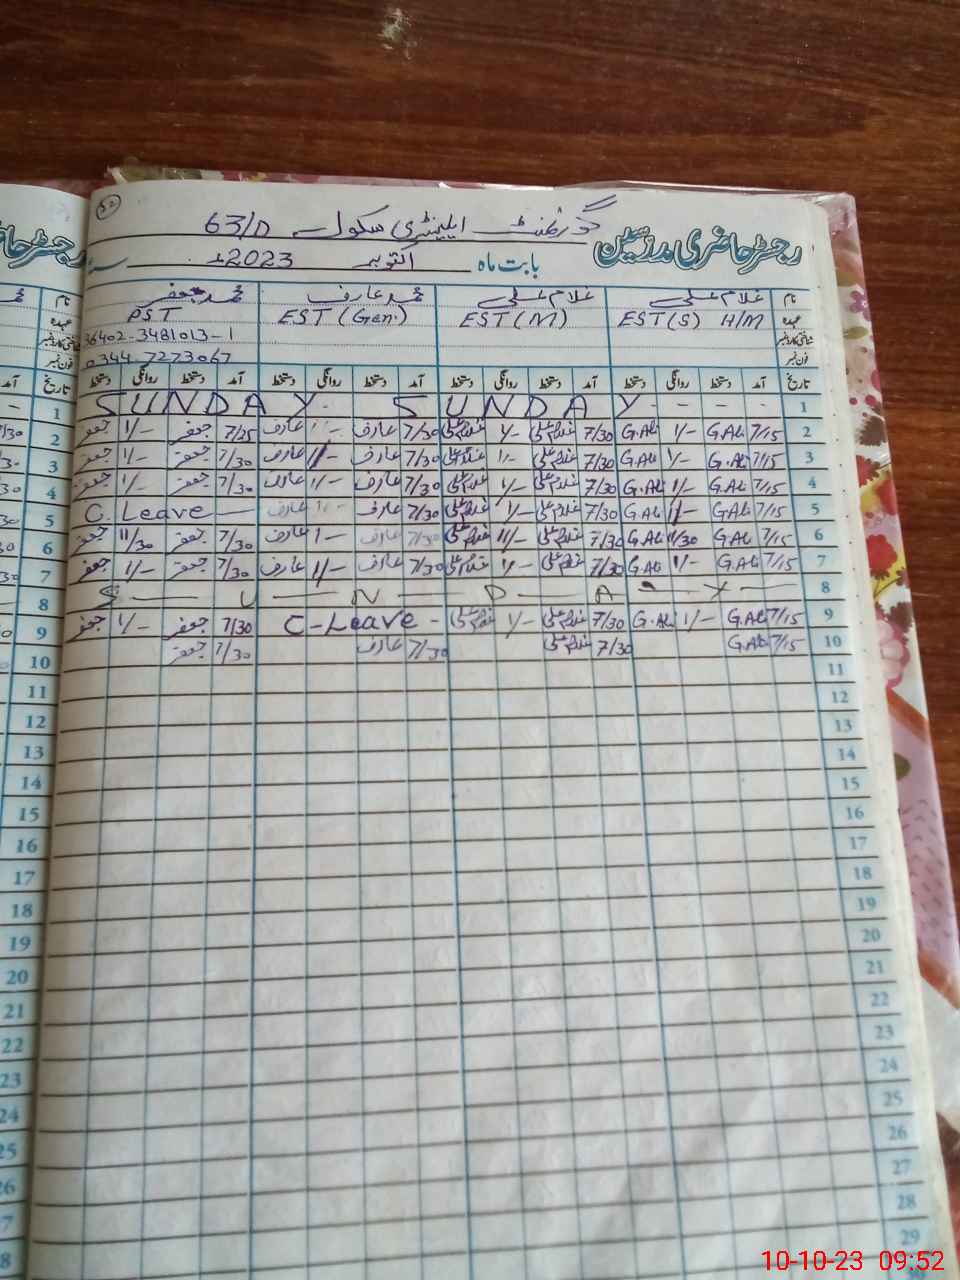 52
گورنمنٹ ایلیمنٹری سکول 63/D
رجسٹر حاضری مدرسین بابت ماہ اکتوبر 2023ء
نام غلام علی غلام علی محمد عارف محمد جعفر
عہدہ EST(S) H/M EST(M) EST(Gen.) PST
شناختی کارڈ نمبر 36402-3481013-1
فون نمبر 0344-7273067
تاریخ آمد دستخط روانگی دستخط آمد دستخط روانگی دستخط آمد دستخط روانگی دستخط آمد دستخط روانگی دستخط
1 SUNDAY - SUNDAY - - - -
2 7/15 G.Ali 1/- G.Ali 7/30 غلام علی 1/- غلام علی 7/30 عارف 1/- عارف 7/25 جعفر 1/- جعفر
3 7/15 G.Ali 1/- G.Ali 7/30 غلام علی 1/- غلام علی 7/30 عارف 1/- عارف 7/30 جعفر 1/- جعفر
4 7/15 G.Ali 1/- G.Ali 7/30 غلام علی 1/- غلام علی 7/30 عارف 1/- عارف 7/30 جعفر 1/- جعفر
5 7/15 G.Ali 1/- G.Ali 7/30 غلام علی 1/- غلام علی 7/30 عارف 1/- عارف C. Leave —
6 7/15 G.Ali 11/30 G.Ali 7/30 غلام علی 11/- غلام علی 7/30 عارف 1- عارف 7/30 جعفر 11/30 جعفر
7 7/15 G.Ali 1/- G.Ali 7/30 غلام علی 1/- غلام علی 7/30 عارف 1/- عارف 7/30 جعفر 1/- جعفر
8 S — U — N — D — A — Y —
9 7/15 G.Ali 1/- G.Ali 7/30 غلام علی 1/- غلام علی C-Leave - 7/30 جعفر 1/- جعفر
10 7/15 G.Ali 7/30 غلام علی 7/30 عارف 7/30 جعفر
11
12
13
14
15
16
17
18
19
20
21
22
23
24
25
26
27
28
29
10-10-23 09:52